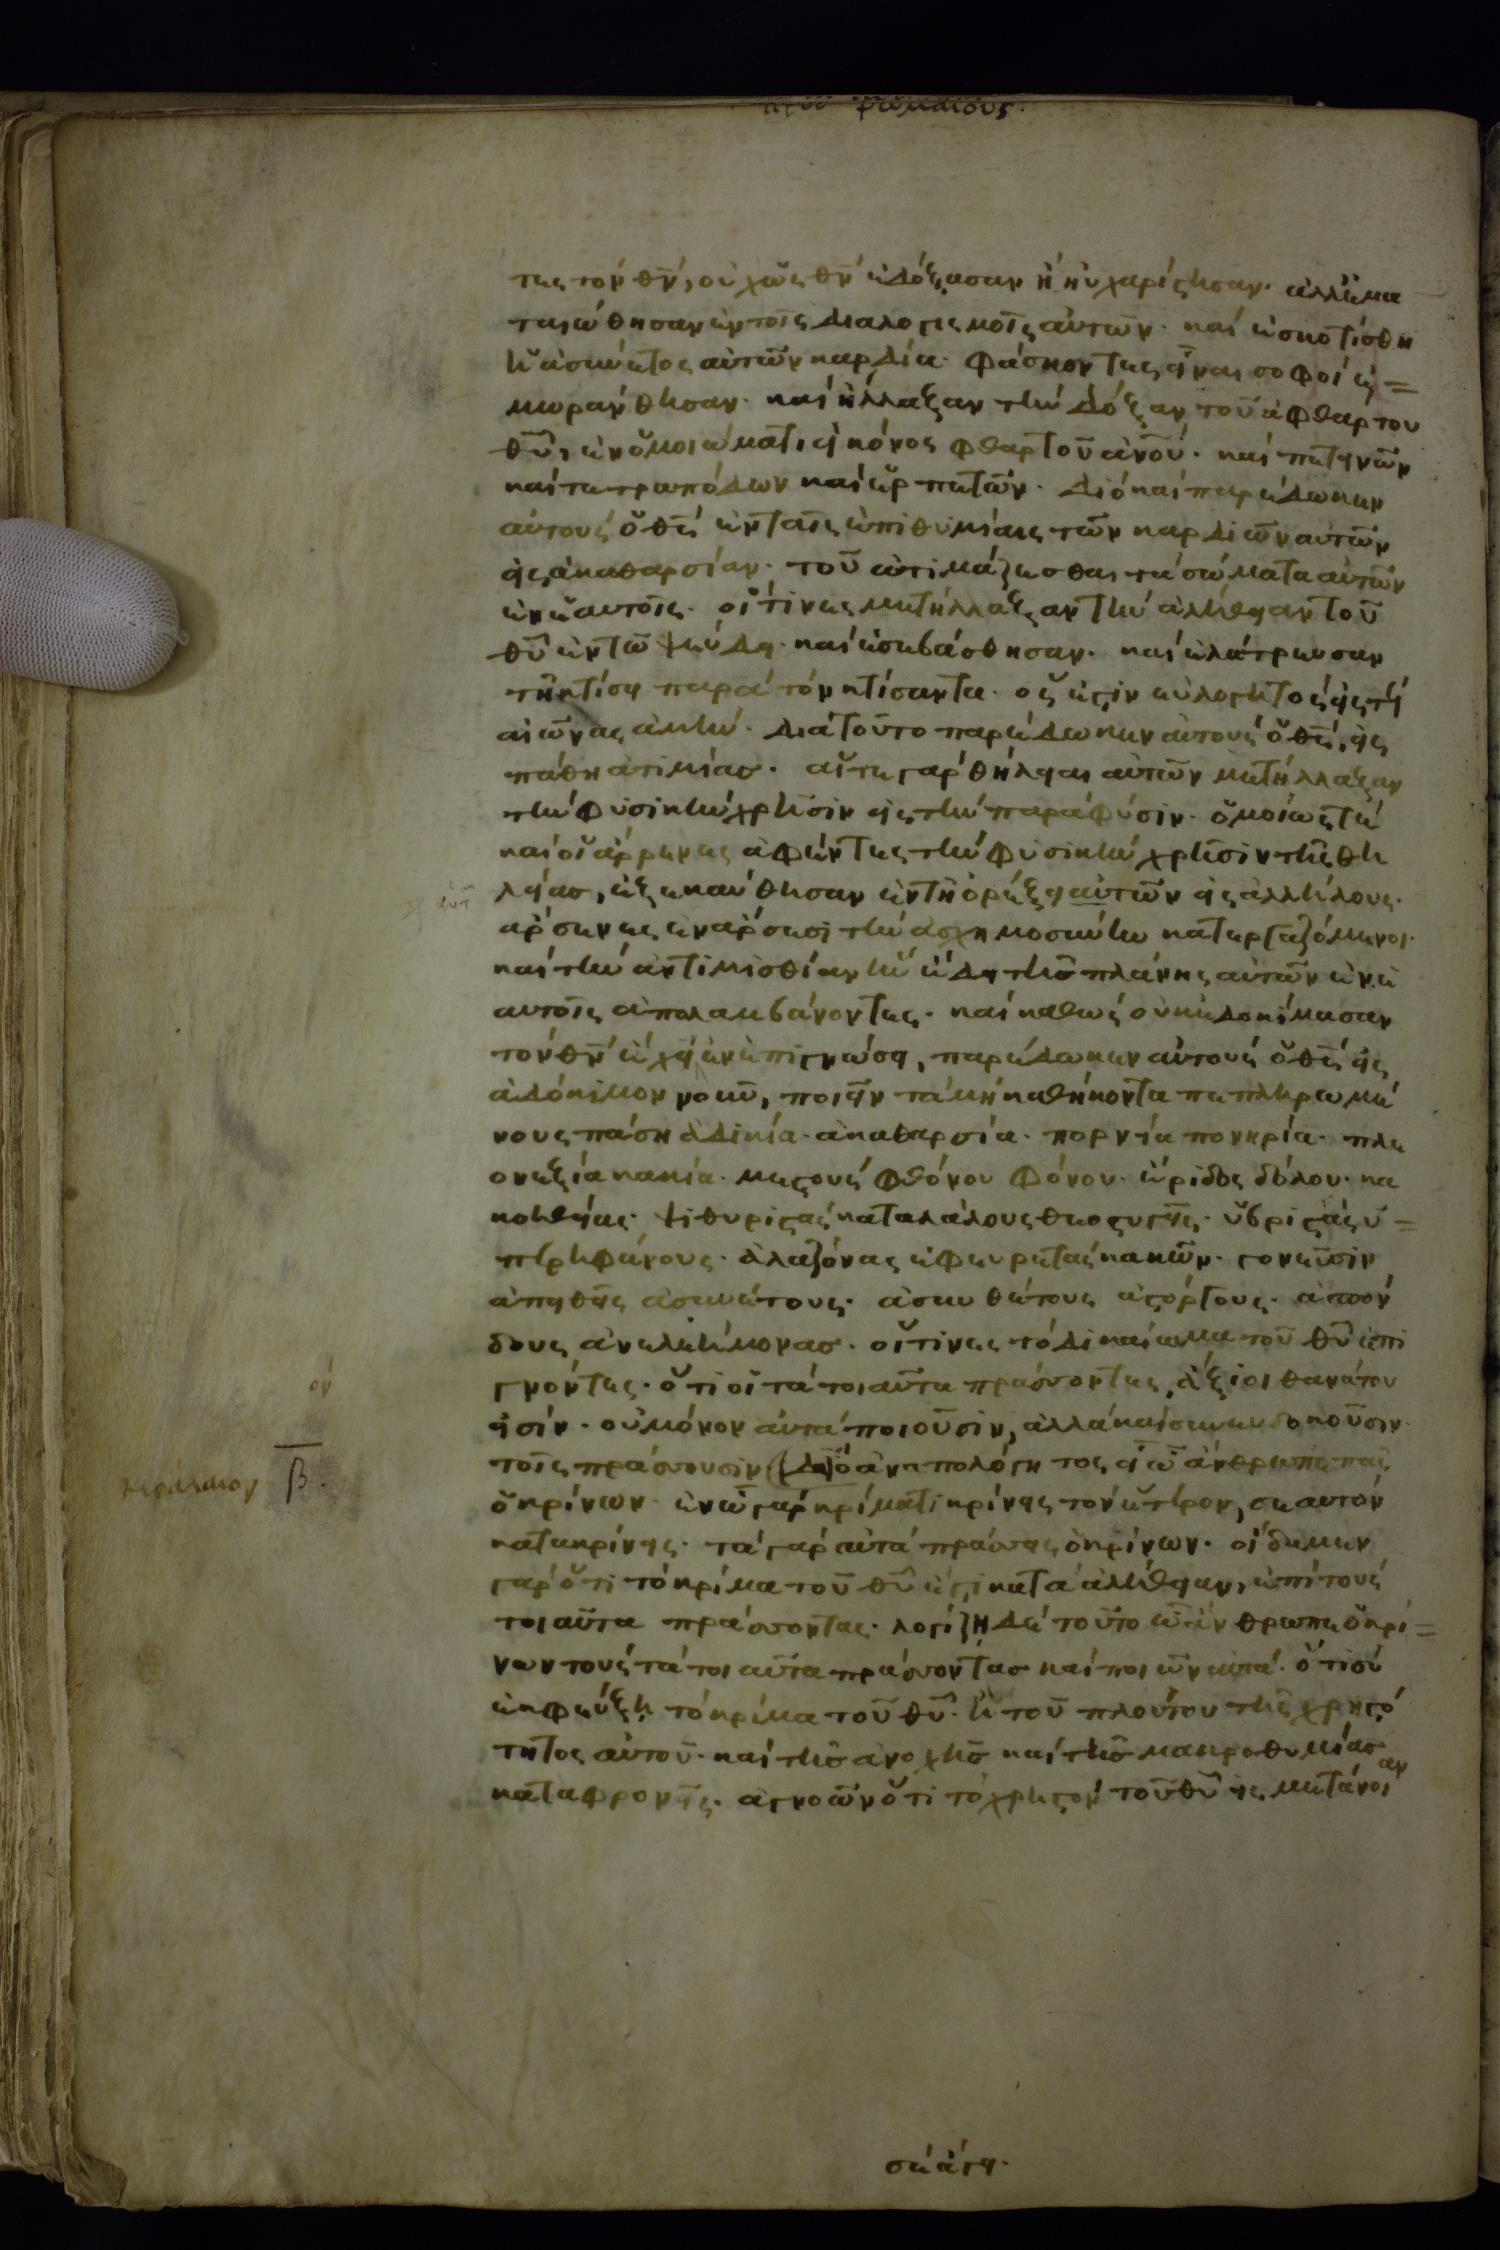 πρὸς ῥωμαίους.
τες τὸν θν̅, οὐχ ὡς θν̅ ἐδόξασαν ἢ ηὐχαρίστησαν. ἀλλ ἐμα
ταιώθησαν ἐν τοῖς διαλογισμοῖς αὐτῶν. καὶ ἐσκοτίσθη
ἡ ἀσύνετος αὐτῶν καρδία. φάσκοντες εἶναι σοφοὶ ἐ=
μωράνθησαν. καὶ ἤλλαξαν τὴν δόξαν τοῦ ἀφθάρτου
θυ̅, ἐν ὁμοιώματι εἰκόνος φθαρτοῦ ἀνου̅. καὶ πετεινῶν
καὶ τετραπόδων καὶ ἑρπετῶν. διὸ καὶ παρέδωκεν
αὐτοὺς ὁ θς̅ ἐν ταῖς ἐπιθυμίαις τῶν καρδιῶν αὐτῶν
εἰς ἀκαθαρσίαν. τοῦ ἀτιμάζεσθαι τὰ σώματα αὐτῶν
ἐν ἑαυτοῖς. οἵτινες μετήλλαξαν τὴν ἀλήθειαν τοῦ
θυ̅ ἐν τῶ ψεύδει. καὶ ἐσεβάσθησαν. καὶ ἐλάτρευσαν
τῆ κτίσει παρὰ τὸν κτίσαντα. ὅς ἐστιν εὐλογητὸς εἰς τοὺς
αἰῶνας ἀμήν. διὰ τοῦτο παρέδωκεν αὐτοὺς ὁ θς̅, εἰς
πάθη ἀτιμίας. αἵ τε γὰρ θήλειαι αὐτῶν μετήλλαξαν
τὴν φυσικὴν χρῆσιν εἰς τὴν παρὰ φύσιν. ὁμοίως τὲ
καὶ οἱ ἄρρενες ἀφέντες τὴν φυσικὴν χρῆσιν τῆς θη
λείας, ἐξεκαύθησαν ἐν τῆ ὀρέξει αὐτῶν εἰς ἀλλήλους.
ἄρσενες ἐν ἄρσεσι τὴν ἀσχημοσύνην κατεργαζόμενοι.
καὶ τὴν ἀντιμισθίαν ἣν ἔδει τῆς πλάνης αὐτῶν ἐν ἑ
αυτοῖς ἀπολαμβάνοντες. καὶ καθὼς οὐκ ἐδοκίμασαν
τὸν θν̅ ἔχειν ἐν ἐπιγνώσει, παρέδωκεν αὐτοὺς ὁ θς̅ εἰς
ἀδόκιμον νοῦν, ποιεῖν τὰ μὴ καθήκοντα πεπληρωμέ
νους πάση ἀδικία. ἀκαθαρσία. πορνεία πονηρία. πλε
ονεξία κακία. μεστοὺς φθόνου φόνου. ἔριδος δόλου. κα
κοηθείας. ψιθυριστὰς καταλάλους θεοστυγεῖς. ὑβριστὰς ὑ=
περηφάνους. ἀλαζόνας ἐφευρετὰς κακῶν. γονεῦσιν
ἀπειθεῖς ἀσυνέτους. ἀσυνθέτους ἀστόργους. ἀσπόν
δους ἀνελεήμονας. οἵτινες τὸ δικαίωμα τοῦ θυ̅ ἐπι
γνόντες. ὅτι οἱ τὰ τοιαῦτα πράσσοντες, ἄξιοι θανάτου
εἰσίν. οὐ μόνον αὐτὰ ποιοῦσιν, ἀλλὰ καὶ συνευδοκοῦσιν
τοῖς πράσσουσιν διὸ ἀναπολόγητος εἶ ὦ ἄνθρωπε πᾶς
ὁ κρίνων. ἐν ὧ γὰρ κρίματι κρίνεις τὸν ἕτερον, σεαυτὸν
κατακρίνεις. τὰ γὰρ αὐτὰ πράσσεις ὁ κρίνων. οἴδαμεν
γὰρ ὅτι τὸ κρίμα τοῦ θυ̅ ἐστι κατὰ ἀλήθειαν, ἐπὶ τοὺς
τοιαῦτα πράσσοντας. λογίζη δὲ τοῦτο ὦ ἄνθρωπε ὁ κρί=
νων τοὺς τὰ τοιαῦτα πράσσοντας καὶ ποιῶν αὐτά. ὅτι σὺ
ἐκφεύξη τὸ κρίμα τοῦ θυ̅. ἢ τοῦ πλούτου τῆς χρηστό
τητος αὐτοῦ. καὶ τῆς ἀνοχῆς καὶ τῆς μακροθυμίας
καταφρονεῖς. ἀγνοῶν ὅτι τὸ χρηστὸν τοῦ θυ̅ εἰς μετάνοιαν
ὸν
κεφάλαιον β̅.
σὲ ἄγει.